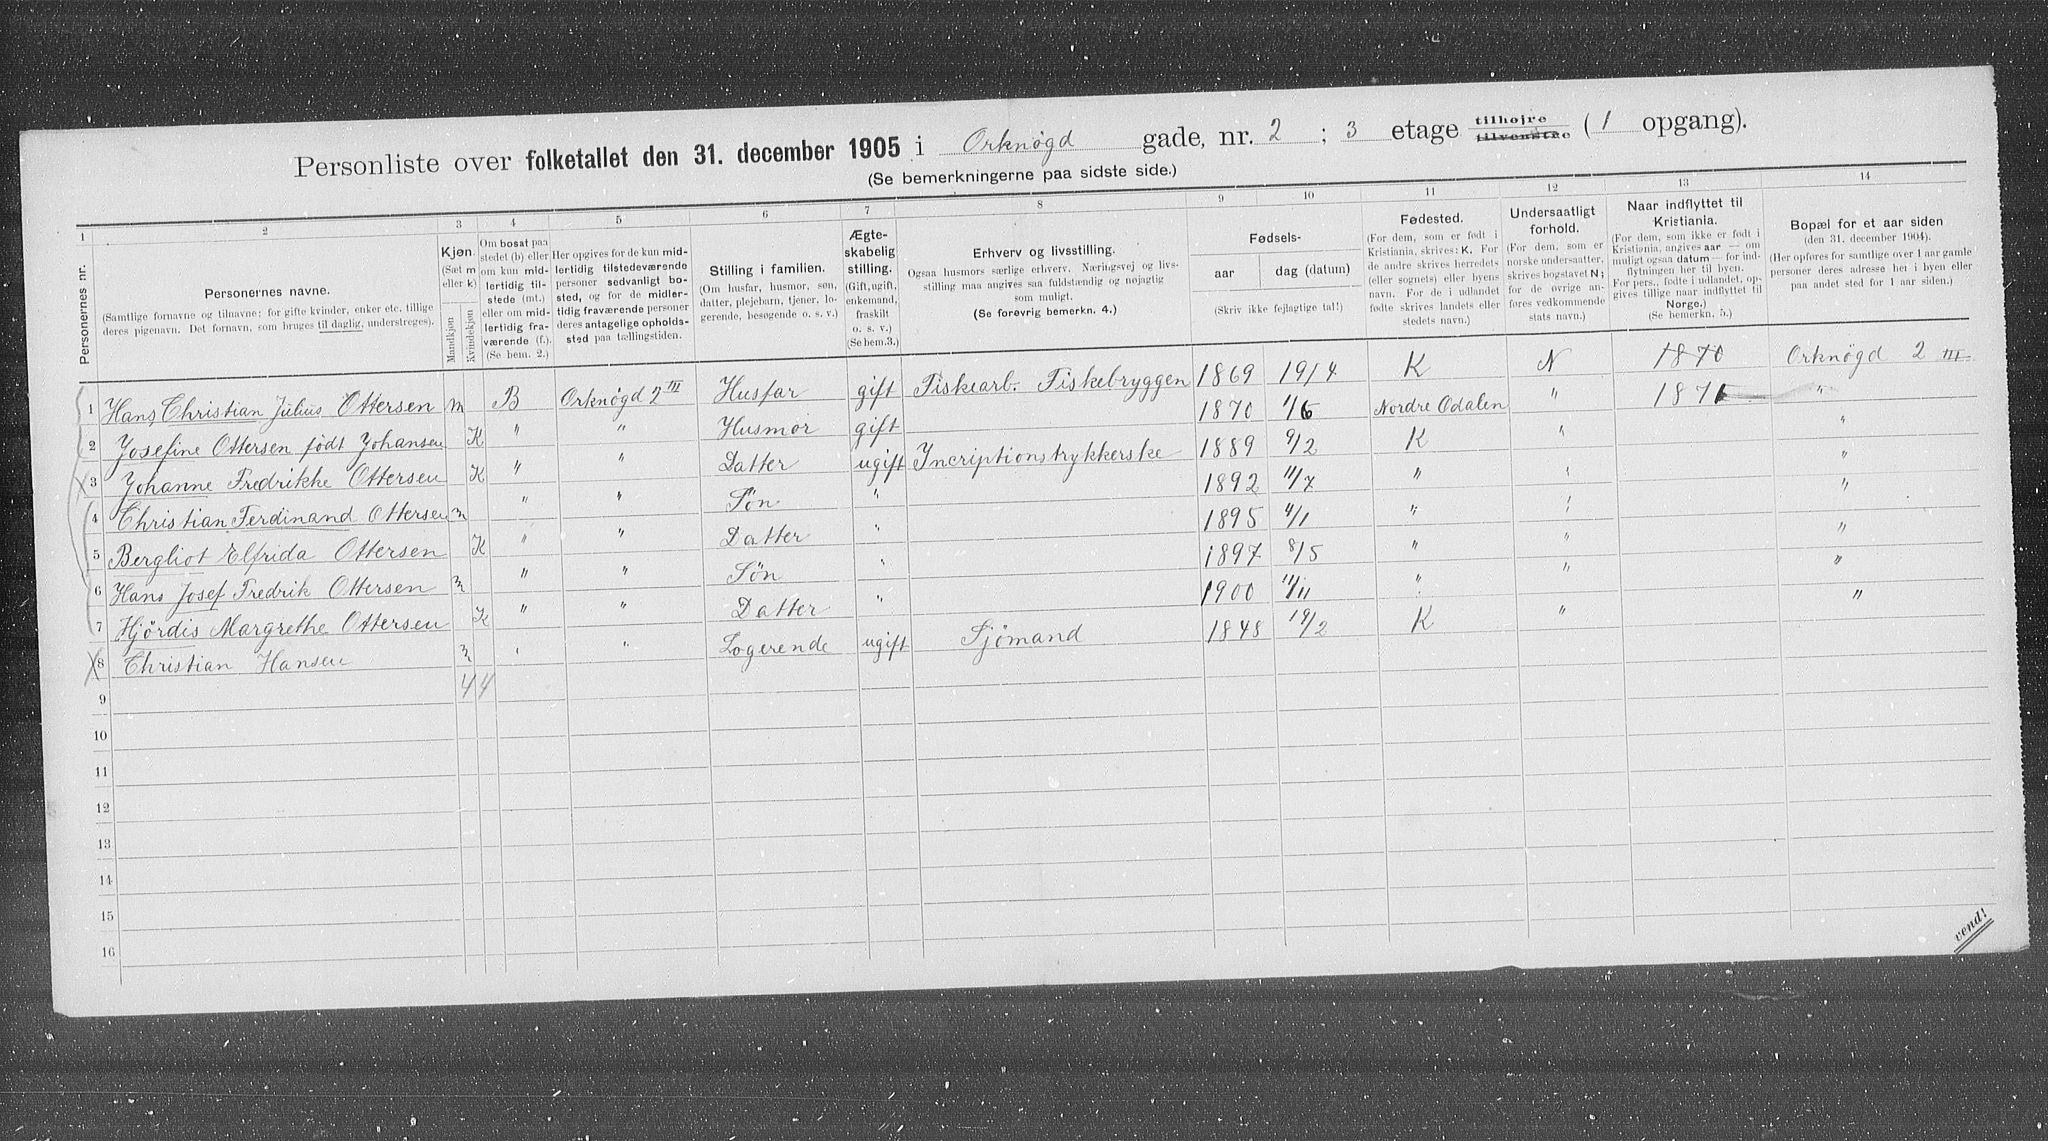 Personliste over folketallet den 31. december 1905 i Orknøgd gade, nr. 2 ; 3 etage tilhøjre tilvenstre ( 1 opgang).
(Se bemerkningerne paa sidste side.)
1 2 3 4 5 6 7 8 9 10 11 12 13 14
Personernes nr.
Personernes navne.
(Samtlige fornavne og tilnavne; for gifte kvinder, enker etc. tillige
deres pigenavn. Det fornavn, som bruges til daglig, understreges).
Kjøn.
(Sæt m
eller k)
Mandkjøn
Kvindekjøn
Om bosat paa
stedet (b) eller
om kun mid-
lertidig til-
stede (mt.)
eller om mid-
lertidig fra-
værende (f.)
(Se bem. 2.)
Her opgives for de kun mid-
lertidig tilstedeværende
personer sedvanligt bo-
sted, og for de midler-
tidig fraværende personer
deres antagelige opholds-
sted paa tællingstiden.
Stilling i familien.
(Om husfar, husmor, søn,
datter, plejebarn, tjener, lo-
gerende, besøgende o. s. v.)
Ægte-
skabelig
stilling.
(Gift, ugift,
enkemand,
fraskilt
o. s. v.)
(Se bem. 3.)
Erhverv og livsstilling.
Ogsaa husmors særlige erhverv. Næringsvej og livs-
stilling maa angives saa fuldstændig og nøjagtig
som muligt.
(Se forøvrig bemerkn. 4.)
Fødsels-
aar
dag (datum)
(Skriv ikke fejlagtige tal!)
Fødested.
(For dem, som er født i
Kristiania, skrives: K. For
de andre skrives herredets
(eller sognets) eller byens
navn. For de i udlandet
fødte skrives landets eller
stedets navn.)
Undersaatligt
forhold.
(For dem, som er
norske undersaatter,
skrives bogstavet N;
for de øvrige an-
føres vedkommende
stats navn.)
Naar indflyttet til
Kristiania.
(For dem, som ikke er født i
Kristiania, angives aar — om
muligt ogsaa datum — for ind-
flytningen her til byen.
For pers., fødte i udlandet, op-
gives tillige naar indflyttet til
Norge.)
(Se bemerkn. 5.)
Bopæl for et aar siden
(den 31. december 1904).
(Her opføres for samtlige over 1 aar gamle
personer deres adresse her i byen eller
paa andet sted for 1 aar siden.)
1 Hans Christian Julius Ottersen m B Orknøgd 2 III Husfar gift Fiskearb. Fiskebryggen 1869 19/4 K N 1870 Orknøgd 2 III
2 Josefine Ottersen født Johansen K " " Husmor gift 1870 1/6 Nordre Odalen " 1871 "
3 Johanne Fredrikke Ottersen K " " Datter ugift Incriptionstrykkerske 1889 9/2 K " "
4 Christian Ferdinand Ottersen m " " Søn " 1892 11/7 " " "
5 Bergliot Elfrida Ottersen K " " Datter " 1895 4/1 " " "
6 Hans Josef Fredrik Ottersen m " " Søn " 1897 8/5 " " "
7 Hjördis Margrethe Ottersen K " " Datter " 1900 11/11 " " "
8 Christian Hansen m " " Logerende ugift Sjømand 1848 19/2 K " "
9 4 4
10
11
12
13
14
15
16
vend!